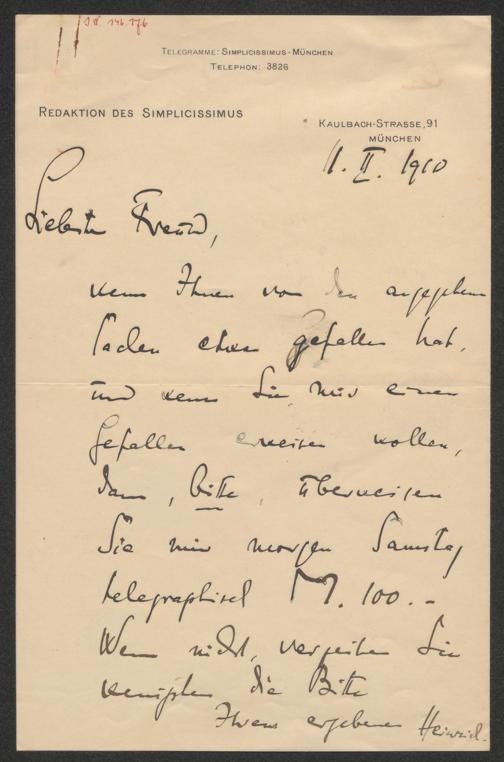 J.N. 146.176
TELEGRAMME: SIMPLICISSIMUS-MÜNCHEN
TELEPHON: 3826
REDAKTION DES SIMPLICISSIMUS
KAULBACH-STRASSE, 91
MÜNCHEN
11. II. 1910
Liebster Freund,
wenn Ihnen von den angegebenen
Sachen etwas gefallen hat,
und wenn Sie mir einen
Gefallen erweisen wollen,
dann, bitte, überweisen
Sie mir morgen Samstag
telegraphisch M. 100.-
Wenn nicht, verzeihen Sie
wenigstens die Bitte
Ihrem ergebenen